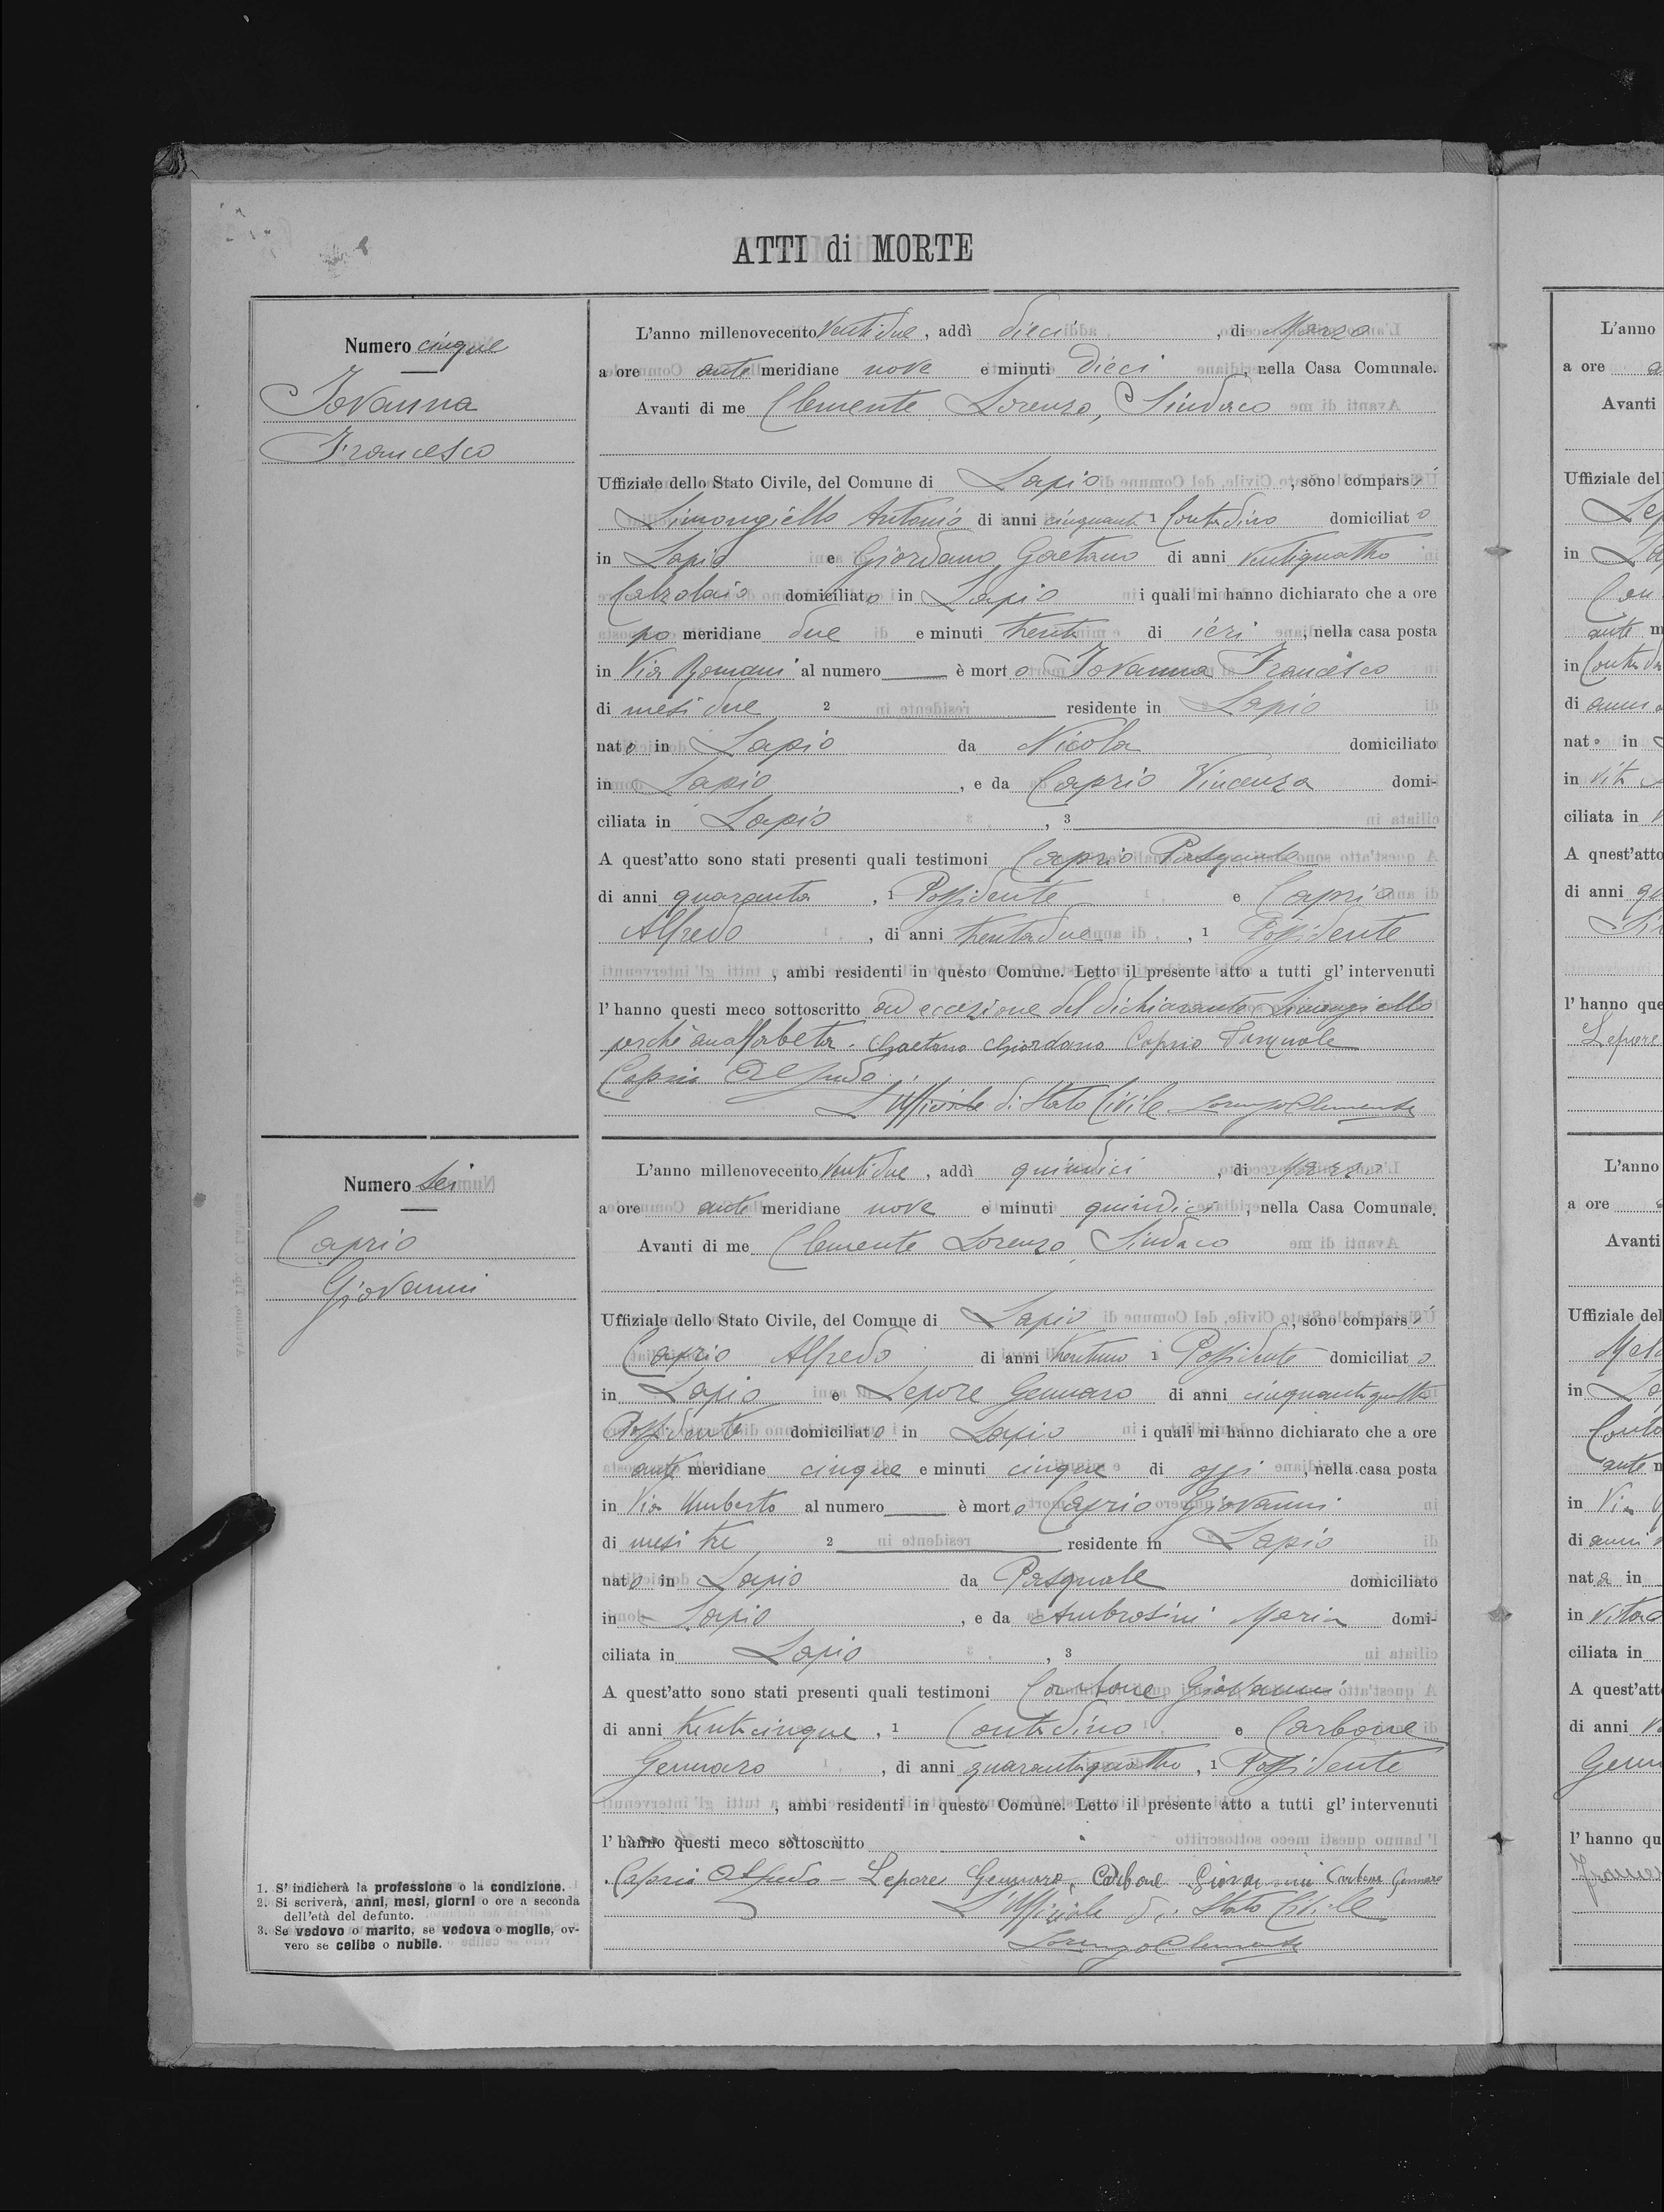 ATTI di MORTE
Numero cinque
Iovanna
Francesco
L'anno millenovecento Ventidue, addì dieci, di Marzo
a ore ante meridiane nove e minuti Dieci, nella Casa Comunale.
Avanti di me Clemente Lorenzo, Sindaco
Uffiziale dello Stato Civile, del Comune di Lapio, sono comparsi
Limongiello Antonio di anni cinquanta 1 Contadino domiciliato
in Lapio e Giordano Gaetano di anni Ventiquattro
Calzolaio domiciliato in Lapio i quali mi hanno dichiarato che a ore
po meridiane due e minuti trenta di ieri, nella casa posta
in Via Romani al numero è morto Iovanna Francesco
di mesi due 2 residente in Lapio
nato in Lapio da Nicola domiciliato
in Lapio, e da Caprio Vincenza domi-
ciliata in Lapio, 3
A quest'atto sono stati presenti quali testimoni Caprio Pasquale
di anni quaranta, 1 Possidente e Caprio
Alfredo, di anni trentadue, 1 Possidente
, ambi residenti in questo Comune. Letto il presente atto a tutti gl'intervenuti
l'hanno questi meco sottoscritto ad eccezione del dichiarante Limongiello
perchè analfabeta. Gaetano Giordano Caprio Pasquale
Caprio Alfredo
L'Uffiziale di Stato Civile Lorenzo Clemente
Numero Sei
Caprio
Giovanni
L'anno millenovecento Ventidue, addì quindici, di Marzo
a ore ante meridiane nove e minuti quindici, nella Casa Comunale.
Avanti di me Clemente Lorenzo, Sindaco
Uffiziale dello Stato Civile, del Comune di Lapio, sono comparsi
Caprio Alfredo di anni trentuno 1 Possidente domiciliato
in Lapio e Lepore Gennaro di anni cinquantaquattro
Possidente domiciliato in Lapio i quali mi hanno dichiarato che a ore
ante meridiane cinque e minuti cinque di oggi, nella casa posta
in Via Umberto al numero è morto Caprio Giovanni
di mesi tre 2 residente in Lapio
nato in Lapio da Pasquale domiciliato
in Lapio, e da Ambrosini Maria domi-
ciliata in Lapio, 3
A quest'atto sono stati presenti quali testimoni Carbone Giovanni
di anni trentacinque, 1 Contadino e Carbone
Gennaro, di anni quarantaquattro, 1 Possidente
, ambi residenti in questo Comune. Letto il presente atto a tutti gl'intervenuti
l'hanno questi meco sottoscritto
Caprio Alfredo - Lepore Gennaro, Carbone Giovanni Carbone Gennaro
L'Uffiziale di Stato Civile
Lorenzo Clemente
1. S'indicherà la professione o la condizione.
2. Si scriverà, anni, mesi, giorni o ore a seconda
dell'età del defunto.
3. Se vedovo o marito, se vedova o moglie, ov-
vero se celibe o nubile.
L'anno
a ore
Avanti
Uffiziale del
in
ante m
in
di anni
nato in
in vita
ciliata in
A quest'atto
di anni
l'hanno que
Lepore
L'anno
a ore
Avanti
Uffiziale del
in
ante m
in Via
di anni
nata in
in vita
ciliata in
A quest'atto
di anni
l'hanno qu